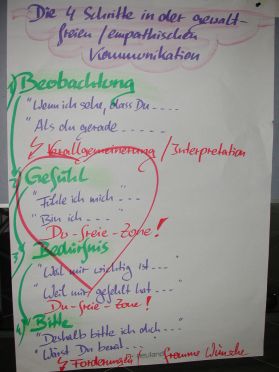 Die 4 Schritte in der gewalt-
freien / empathischen
Kommunikation
1) Beobachtung
"Wenn ich sehe, dass Du ----
"Als du gerade .....
Verallgemeinerung / Interpretation
2) Gefühl
"Fühle ich mich ---"
"Bin ich ---- "
Du-freie-Zone!
3) Bedürfnis
"Weil mir wichtig ist---
"Weil mir gefehlt hat ---
Du-freie-Zone!
4) Bitte
"Deshalb bitte ich dich ----
"Wärst Du bereit....
Forderungen / fromme Wünsche
neuland